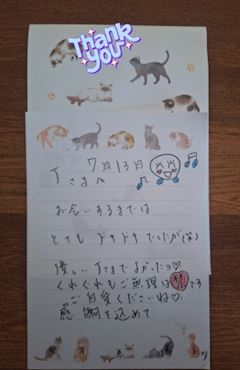 Thank
you
7月13日
Tさんへ
お会いするまでは
とてもドキドキでしたが(笑)
優しいTさまでよかったヨ♡
くれぐれもご無理は禁です
ご自愛くださいね♡
感謝を込めて